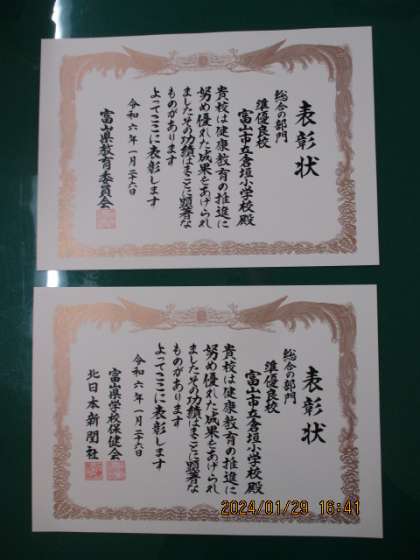 表彰状
総合の部門
準優良校
富山市立倉垣小学校殿
貴校は健康教育の推進に
努め優れた成果をあげられ
ましたその功績はまことに顕著な
ものがあります
よってここに表彰します
令和六年一月二十六日
富山県教育委員会
表彰状
総合の部門
準優良校
富山市立倉垣小学校殿
貴校は健康教育の推進に
努め優れた成果をあげられ
ましたその功績はまことに顕著な
ものがあります
よってここに表彰します
令和六年一月二十六日
富山県学校保健会
北日本新聞社
2024/01/29 16:41